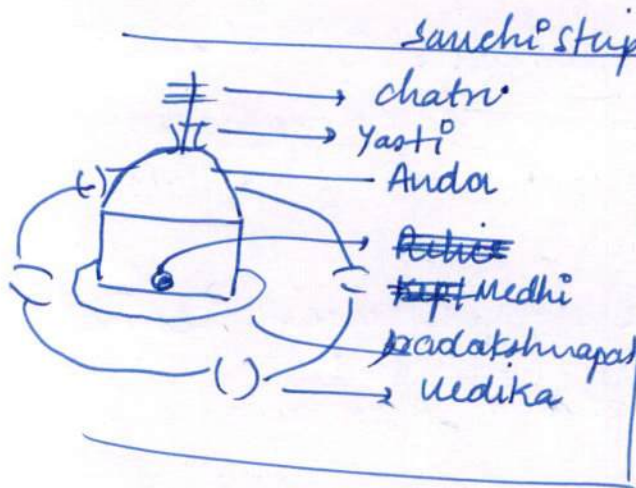 Sanchi Stup
chatri
Yasti
Anda
Medhi
pradakshinapat
Vedika